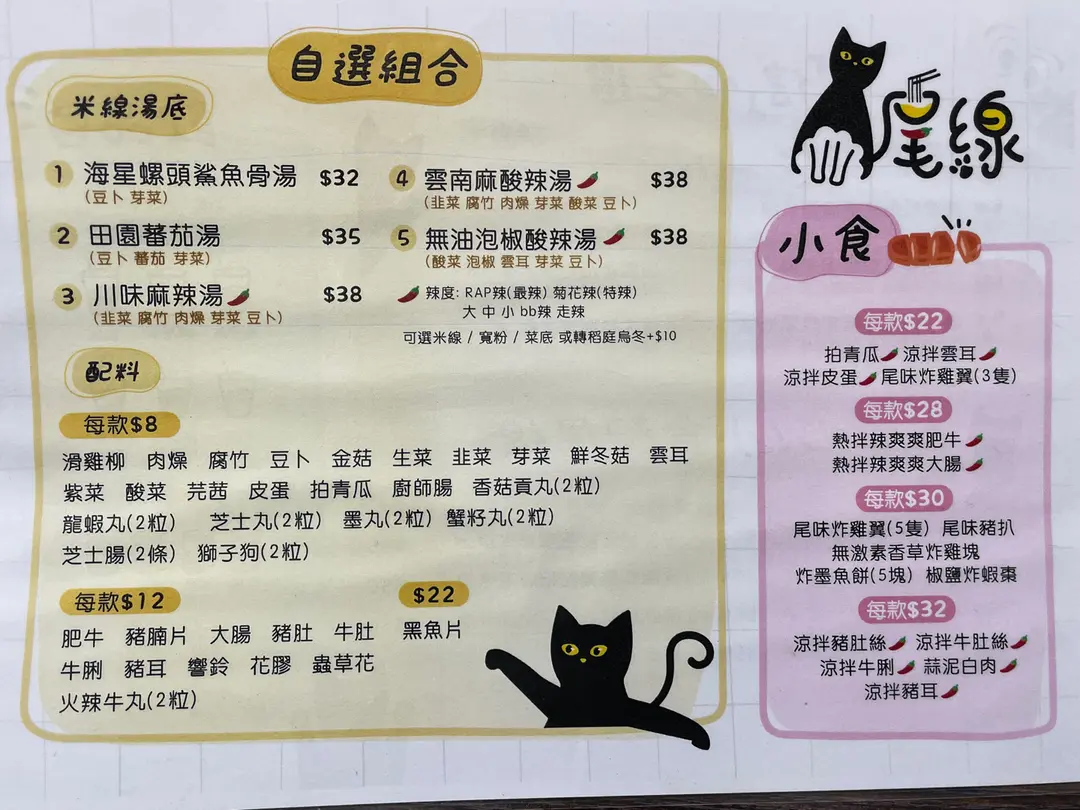 自選組合
米線湯底
1 海星螺頭鯊魚骨湯 $32
(豆卜 芽菜)
2 田園蕃茄湯 $35
(豆卜 蕃茄 芽菜)
3 川味麻辣湯 $38
(韭菜 腐竹 肉燥 芽菜 豆卜)
4 雲南麻酸辣湯 $38
(韭菜 腐竹 肉燥 芽菜 酸菜 豆卜)
5 無油泡椒酸辣湯 $38
(酸菜 泡椒 雲耳 芽菜 豆卜)
辣度: RAP辣(最辣) 菊花辣(特辣)
大 中 小 bb辣 走辣
可選米線 / 寬粉 / 菜底 或轉稻庭烏冬+$10
配料
每款$8
滑雞柳 肉燥 腐竹 豆卜 金菇 生菜 韭菜 芽菜 鮮冬菇 雲耳
紫菜 酸菜 芫茜 皮蛋 拍青瓜 廚師腸 香菇貢丸(2粒)
龍蝦丸(2粒) 芝士丸(2粒) 墨丸(2粒) 蟹籽丸(2粒)
芝士腸(2條) 獅子狗(2粒)
每款$12
肥牛 豬腩片 大腸 豬肚 牛肚
牛脷 豬耳 響鈴 花膠 蟲草花
火辣牛丸(2粒)
$22
黑魚片
尾線
小食
每款$22
拍青瓜 涼拌雲耳
涼拌皮蛋 尾味炸雞翼(3隻)
每款$28
熱拌辣爽爽肥牛
熱拌辣爽爽大腸
每款$30
尾味炸雞翼(5隻) 尾味豬扒
無激素香草炸雞塊
炸墨魚餅(5塊) 椒鹽炸蝦棗
每款$32
涼拌豬肚絲 涼拌牛肚絲
涼拌牛脷 蒜泥白肉
涼拌豬耳